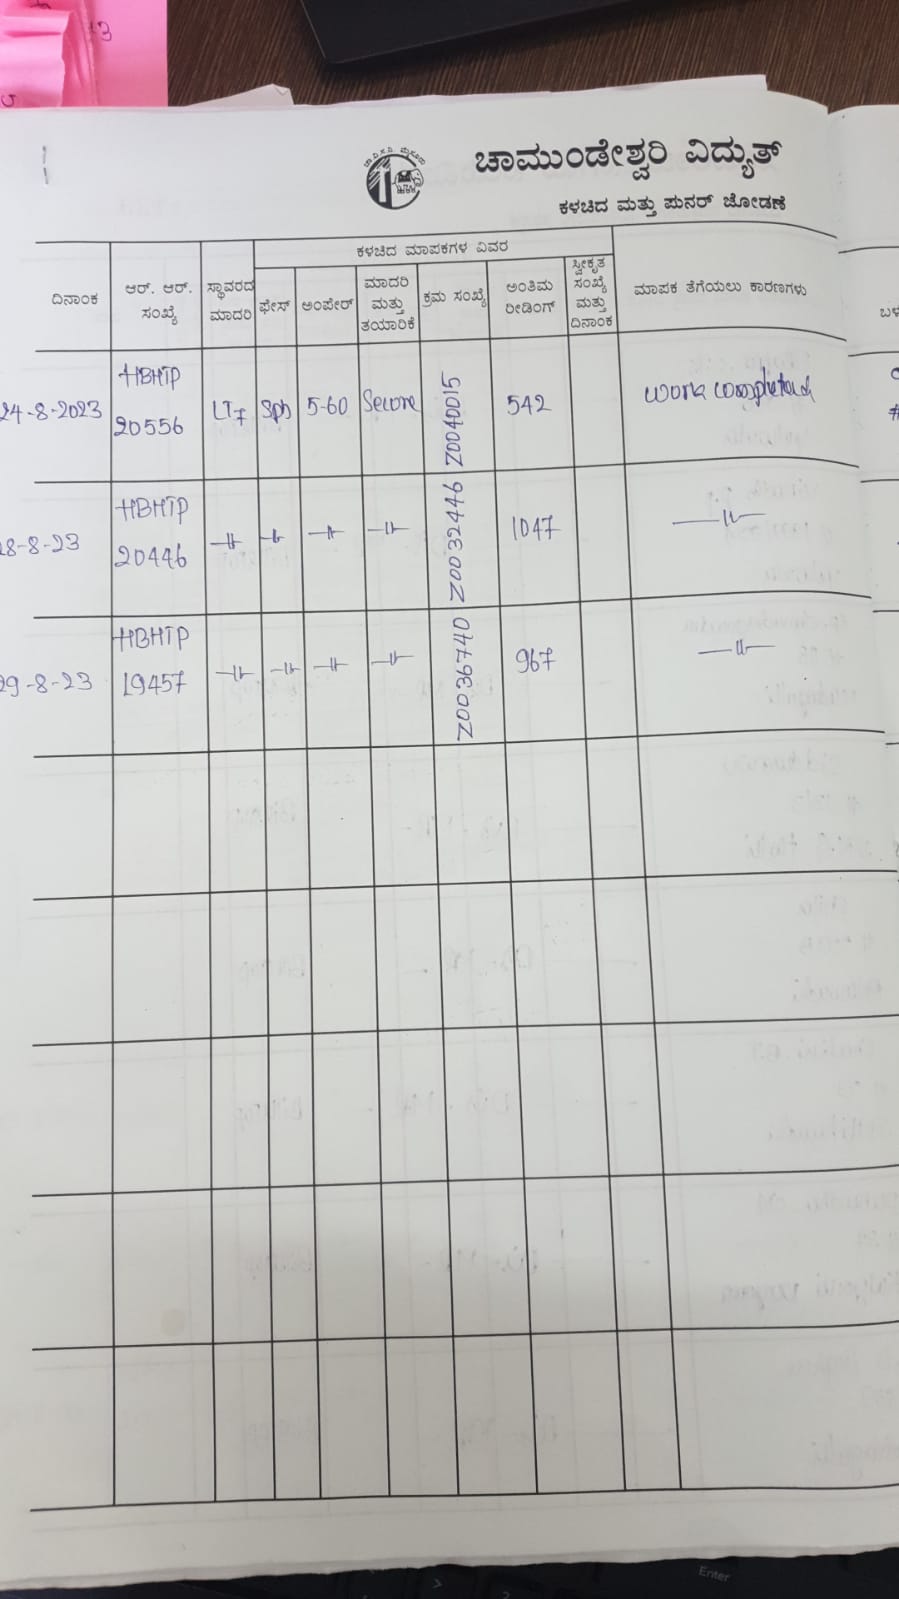 ಚಾಮುಂಡೇಶ್ವರಿ ವಿದ್ಯುತ್
ಕಳಚಿದ ಮತ್ತು ಪುನರ್ ಜೋಡಣೆ
ಕಳಚಿದ ಮಾಪಕಗಳ ವಿವರ
ದಿನಾಂಕ
ಆರ್. ಆರ್.
ಸಂಖ್ಯೆ
ಸ್ಥಾವರದ
ಮಾದರಿ
ಫೇಸ್
ಅಂಪೇರ್
ಮಾದರಿ
ಮತ್ತು
ತಯಾರಿಕೆ
ಕ್ರಮ ಸಂಖ್ಯೆ
ಅಂತಿಮ
ರೀಡಿಂಗ್
ಸ್ವೀಕೃತ
ಸಂಖ್ಯೆ
ಮತ್ತು
ದಿನಾಂಕ
ಮಾಪಕ ತೆಗೆಯಲು ಕಾರಣಗಳು
24-8-2023
HBHTP
20556
LT7
Sph
5-60
Secure
Z0040015
542
work completed
28-8-23
HBHTP
20446
—〃—
—〃—
—〃—
—〃—
Z0032446
1047
—〃—
29-8-23
HBHTP
19457
—〃—
—〃—
—〃—
—〃—
Z0036740
967
—〃—
Enter